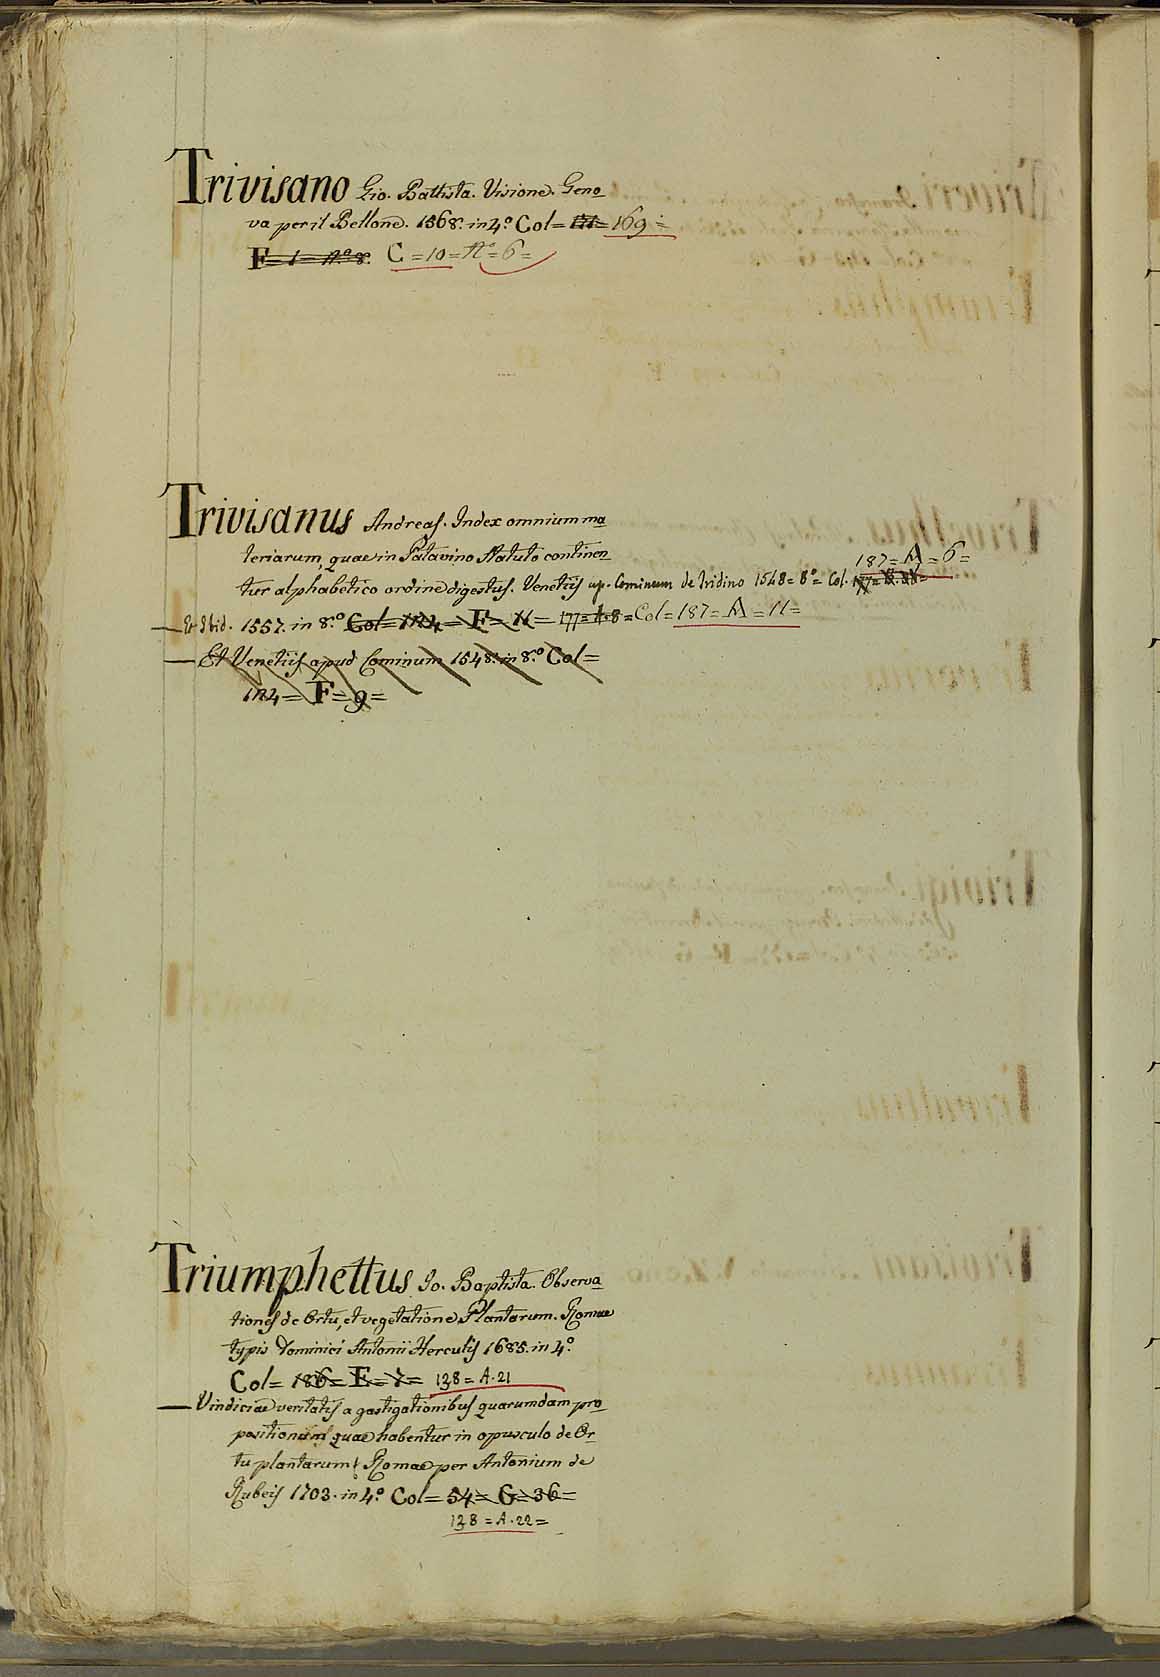 Trivisano Gio. Battista. Visione. Geno-
va per il Bellone. 1568. in 4.º Col= 169=
F=1=Nº 8. C=10=Nº=6=
Trivisanus Andreas. Index omnium ma-
teriarum, quae in Patavino Statuto continen-
187=A=6=
tur alphabetico ordine digestus. Venetiis ap. Cominum de Tridino 1548=8º= Col.
— Et Ibid. 1557. in 8.º Col=124=F=11= 177=A.8=Col=187=A=11=
— Et Venetiis apud Cominum 1548. in 8.º Col=
124=F=9=
Triumphettus Jo. Baptista. Observa-
tiones de Ortu, et vegetatione Plantarum. Romae
typis Dominici Antonii Herculis 1685. in 4.º
Col= 186=E=7= 138=A.21
— Vindiciae veritatis a gastigationibus quarumdam pro-
positionum quae habentur in opusculo de Or-
tu plantarum. Romae per Antonium de
Rubeis 1703. in 4.º Col=54=G=36=
138=A.22=